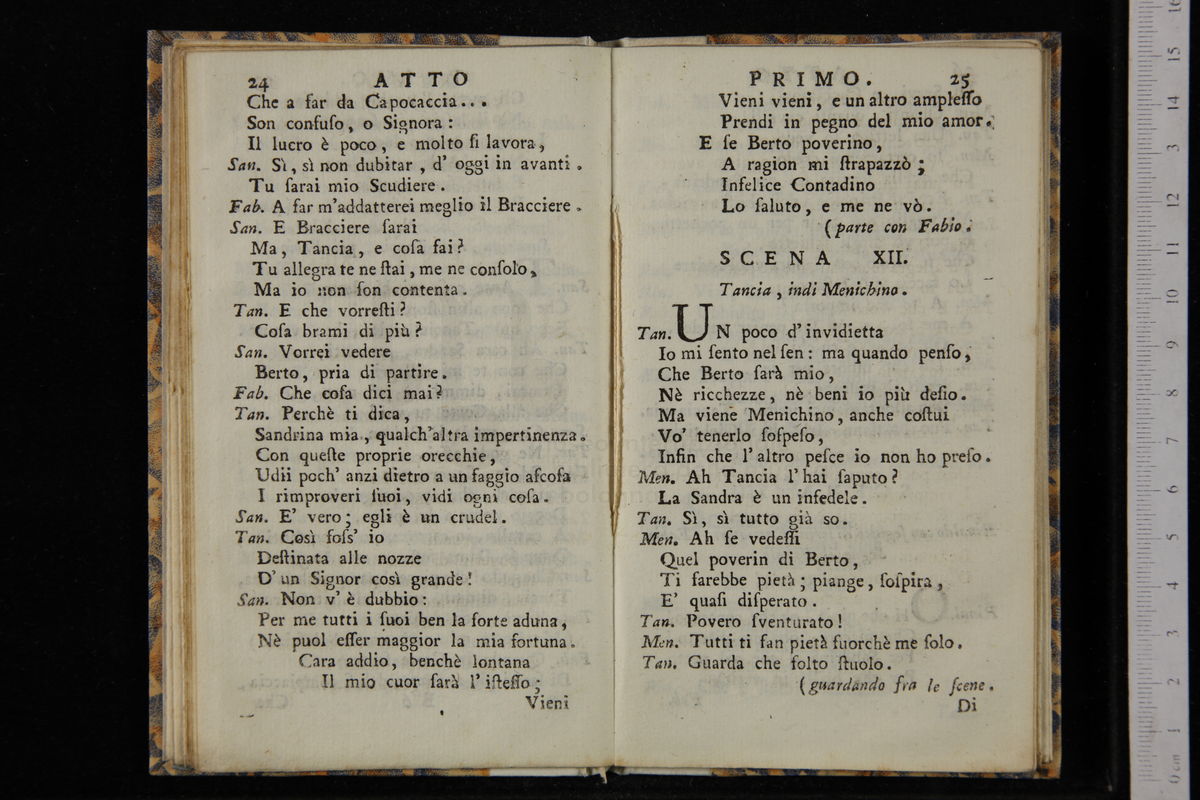 24 ATTO
Che a far da Capocaccia...
Son confuſo, o Signora:
Il lucro è poco, e molto ſi lavora,
San. Sì, sì non dubitar, d' oggi in avanti.
Tu ſarai mio Scudiere.
Fab. A far m'addatterei meglio il Bracciere.
San. E Bracciere ſarai
Ma, Tancia, e coſa fai?
Tu allegra te ne ſtai, me ne conſolo,
Ma io non ſon contenta.
Tan. E che vorreſti?
Coſa brami di più?
San. Vorrei vedere
Berto, pria di partire.
Fab. Che coſa dici mai?
Tan. Perchè ti dica,
Sandrina mia, qualch'altra impertinenza.
Con queſte proprie orecchie,
Udii poch' anzi dietro a un faggio aſcoſa
I rimproveri ſuoi, vidi ogni coſa.
San. E' vero; egli è un crudel.
Tan. Così foſs' io
Deſtinata alle nozze
D' un Signor così grande!
San. Non v' è dubbio:
Per me tutti i ſuoi ben la ſorte aduna,
Nè puol eſſer maggior la mia fortuna.
Cara addio, benchè lontana
Il mio cuor ſarà l' iſteſſo;
Vieni
PRIMO. 25
Vieni vieni, e un altro ampleſſo
Prendi in pegno del mio amor.
E ſe Berto poverino,
A ragion mi ſtrapazzò;
Infelice Contadino
Lo ſaluto, e me ne vò.
(parte con Fabio.
SCENA XII.
Tancia, indi Menichino.
Tan. UN poco d' invidietta
Io mi ſento nel ſen: ma quando penſo,
Che Berto ſarà mio,
Nè ricchezze, nè beni io più deſio.
Ma viene Menichino, anche coſtui
Vo' tenerlo ſoſpeſo,
Infin che l' altro peſce io non ho preſo.
Men. Ah Tancia l' hai ſaputo?
La Sandra è un infedele.
Tan. Sì, sì tutto già so.
Men. Ah ſe vedeſſi
Quel poverin di Berto,
Ti farebbe pietà; piange, ſoſpira,
E' quaſi diſperato.
Tan. Povero ſventurato!
Men. Tutti ti fan pietà fuorchè me ſolo.
Tan. Guarda che folto ſtuolo.
(guardando fra le ſcene.
Di